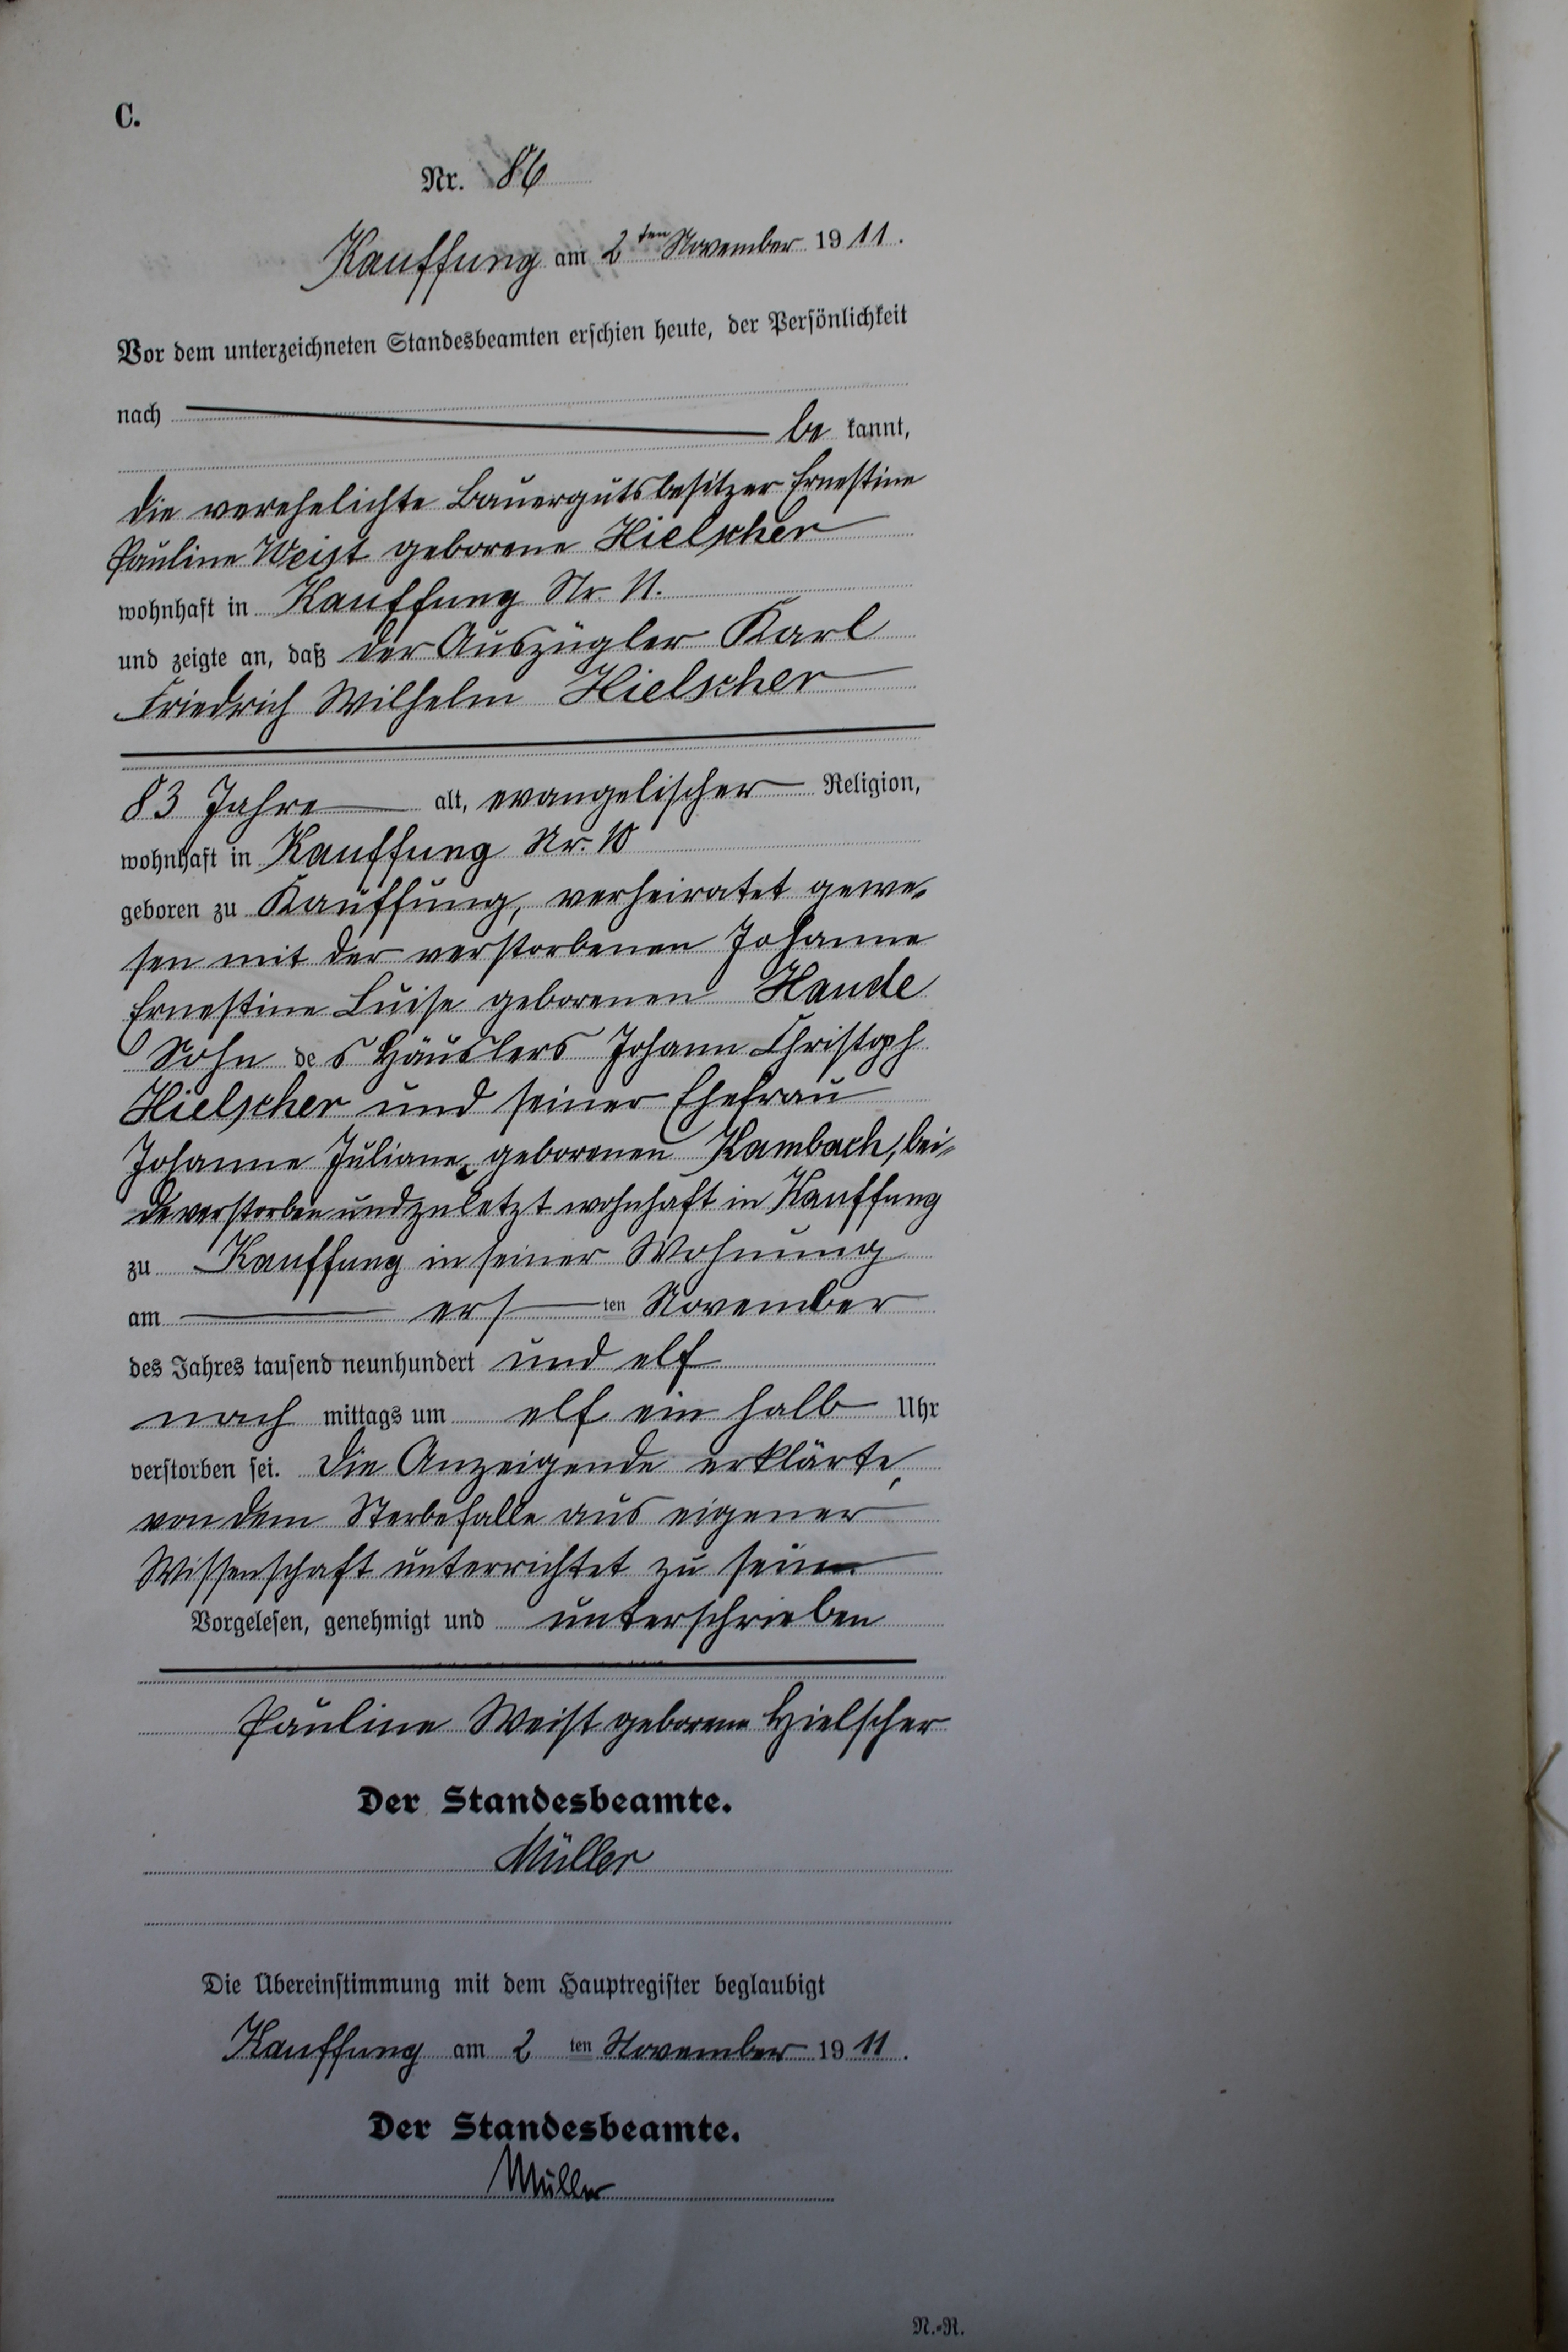 C.
Nr. 86
Kauffung am 2ten November 1911.
Vor dem unterzeichneten Standesbeamten erschien heute, der Persönlichkeit
nach be kannt,
die verehelichte Bauergutsbesitzer Ernestine
Pauline Weist geborene Hielscher
wohnhaft in Kauffung Nr. 11.
und zeigte an, daß der Auszügler Karl
Friedrich Wilhelm Hielscher
83 Jahre alt, evangelischer Religion,
wohnhaft in Kauffung Nr. 10
geboren zu Kauffung, verheiratet gewe-
sen mit der verstorbenen Johanne
Ernestine Luise geborenen Hande
Sohn des Häuslers Johann Christoph
Hielscher und seiner Ehefrau
Johanne Juliane, geborenen Kambach, bei-
de verstorben und zuletzt wohnhaft in Kauffung
zu Kauffung in seiner Wohnung
am ers ten November
des Jahres tausend neunhundert und elf
nach mittags um elf ein halb Uhr
verstorben sei. Die Anzeigende erklärte,
von dem Sterbefalle aus eigener
Wissenschaft unterrichtet zu sein
Vorgelesen, genehmigt und unterschrieben
Pauline Weist geborene Hielscher
Der Standesbeamte.
Müller
Die Übereinstimmung mit dem Hauptregister beglaubigt
Kauffung am 2 ten November 1911.
Der Standesbeamte.
Müller
N.-R.